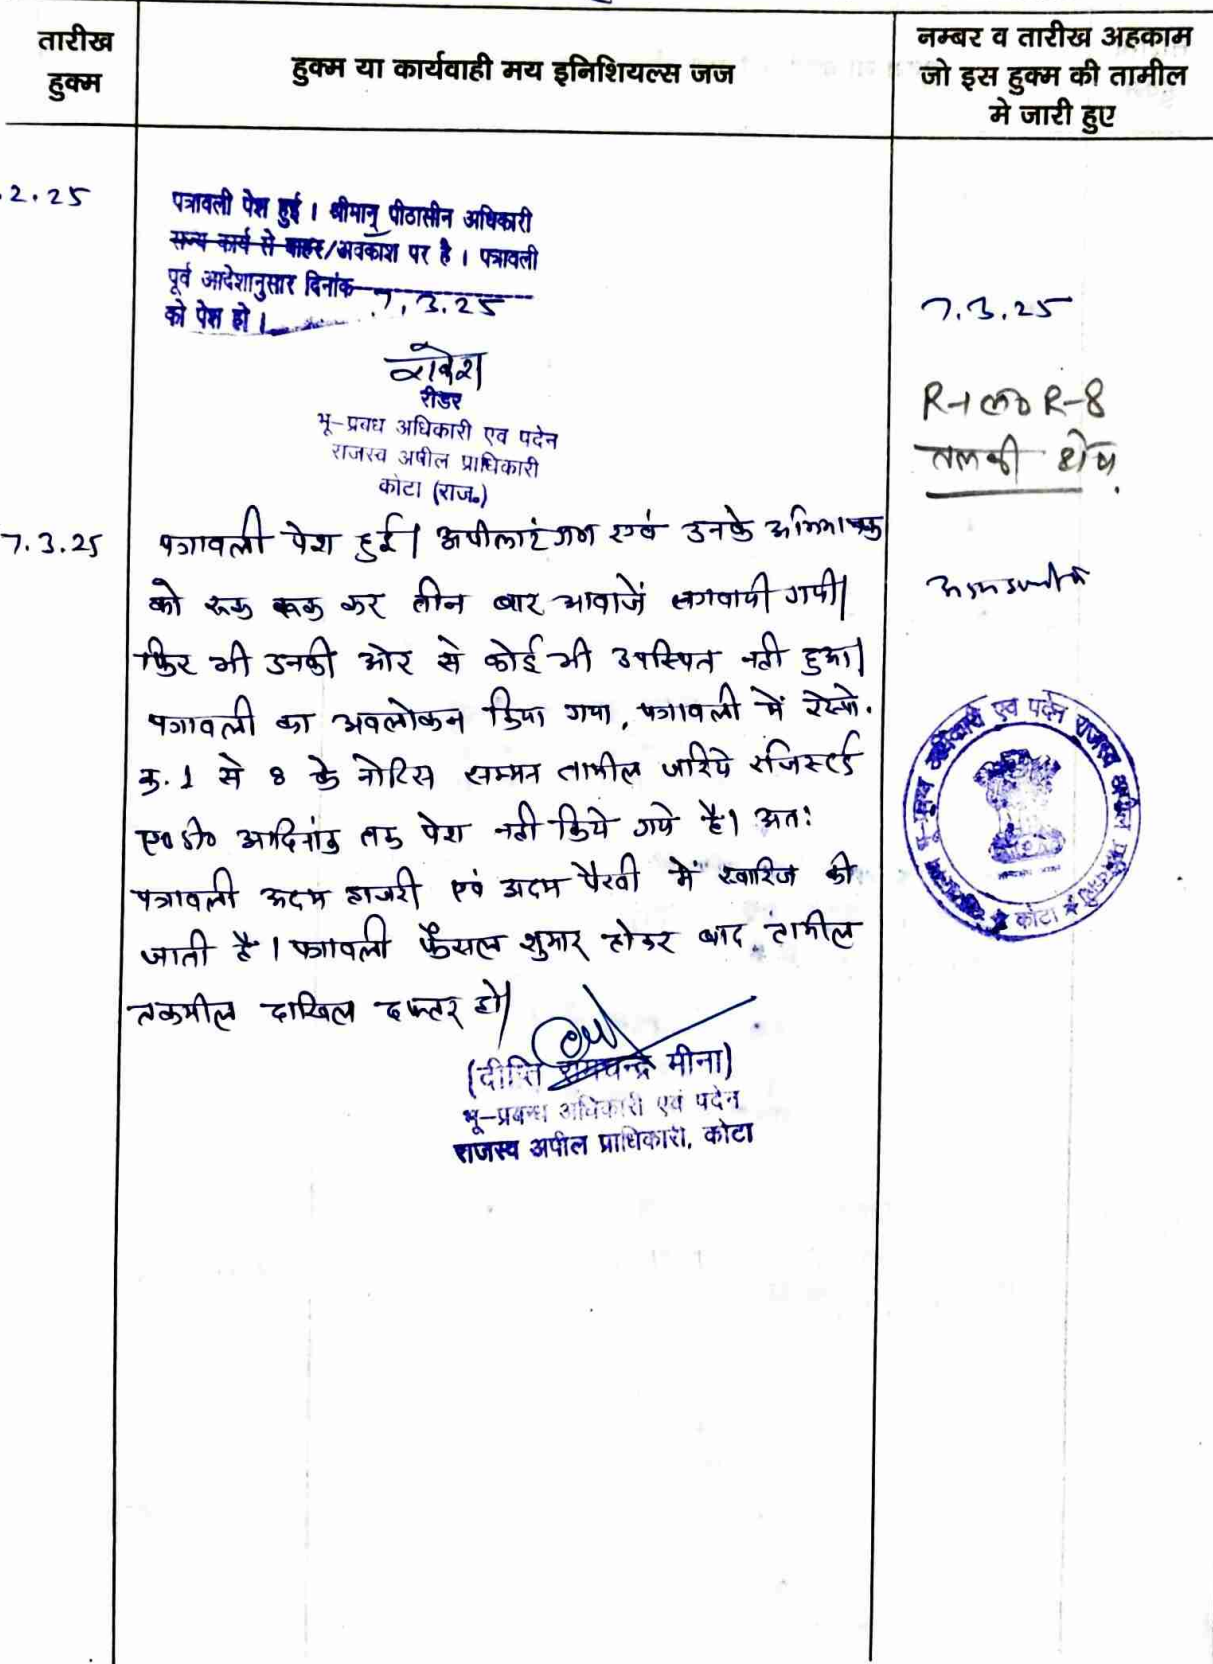 तारीख
हुक्म
हुक्म या कार्यवाही मय इनिशियल्स जज
नम्बर व तारीख अहकाम
जो इस हुक्म की तामील
मे जारी हुए
.2.25
पत्रावली पेश हुई । श्रीमान् पीठासीन अधिकारी
कार्य से बाहर/अवकाश पर है । पत्रावली
पूर्व आदेशानुसार दिनांक 7.3.25
को पेश हो ।
रीडर
भू-प्रबंध अधिकारी एवं पदेन
राजस्व अपील प्राधिकारी
कोटा (राज.)
7.3.25
R-8
तलबी शेष
7.3.25
पत्रावली पेश हुई। अपीलांटगण एवं उनके अभिभाषक
को रूक रूक कर तीन बार आवाजें लगवायी गयी।
फिर भी उनकी ओर से कोई भी उपस्थित नही हुआ।
पत्रावली का अवलोकन किया गया, पत्रावली में रेस्पो.
क्र. 1 से 8 के नोटिस सम्मन तामील जरिये रजिस्टर्ड
ए०डी० आदिनांक तक पेश नही किये गये है। अतः
पत्रावली अदम हाजरी एवं अदम पैरवी में खारिज की
जाती है । पत्रावली फैसल शुमार होकर बाद तामील
तकमील दाखिल दफ्तर हो।
(दीप्ति रामचन्द्र मीना)
भू-प्रबन्ध अधिकारी एवं पदेन
राजस्व अपील प्राधिकारी, कोटा
अधिकारी एवं पदेन राजस्व अपील
कोटा